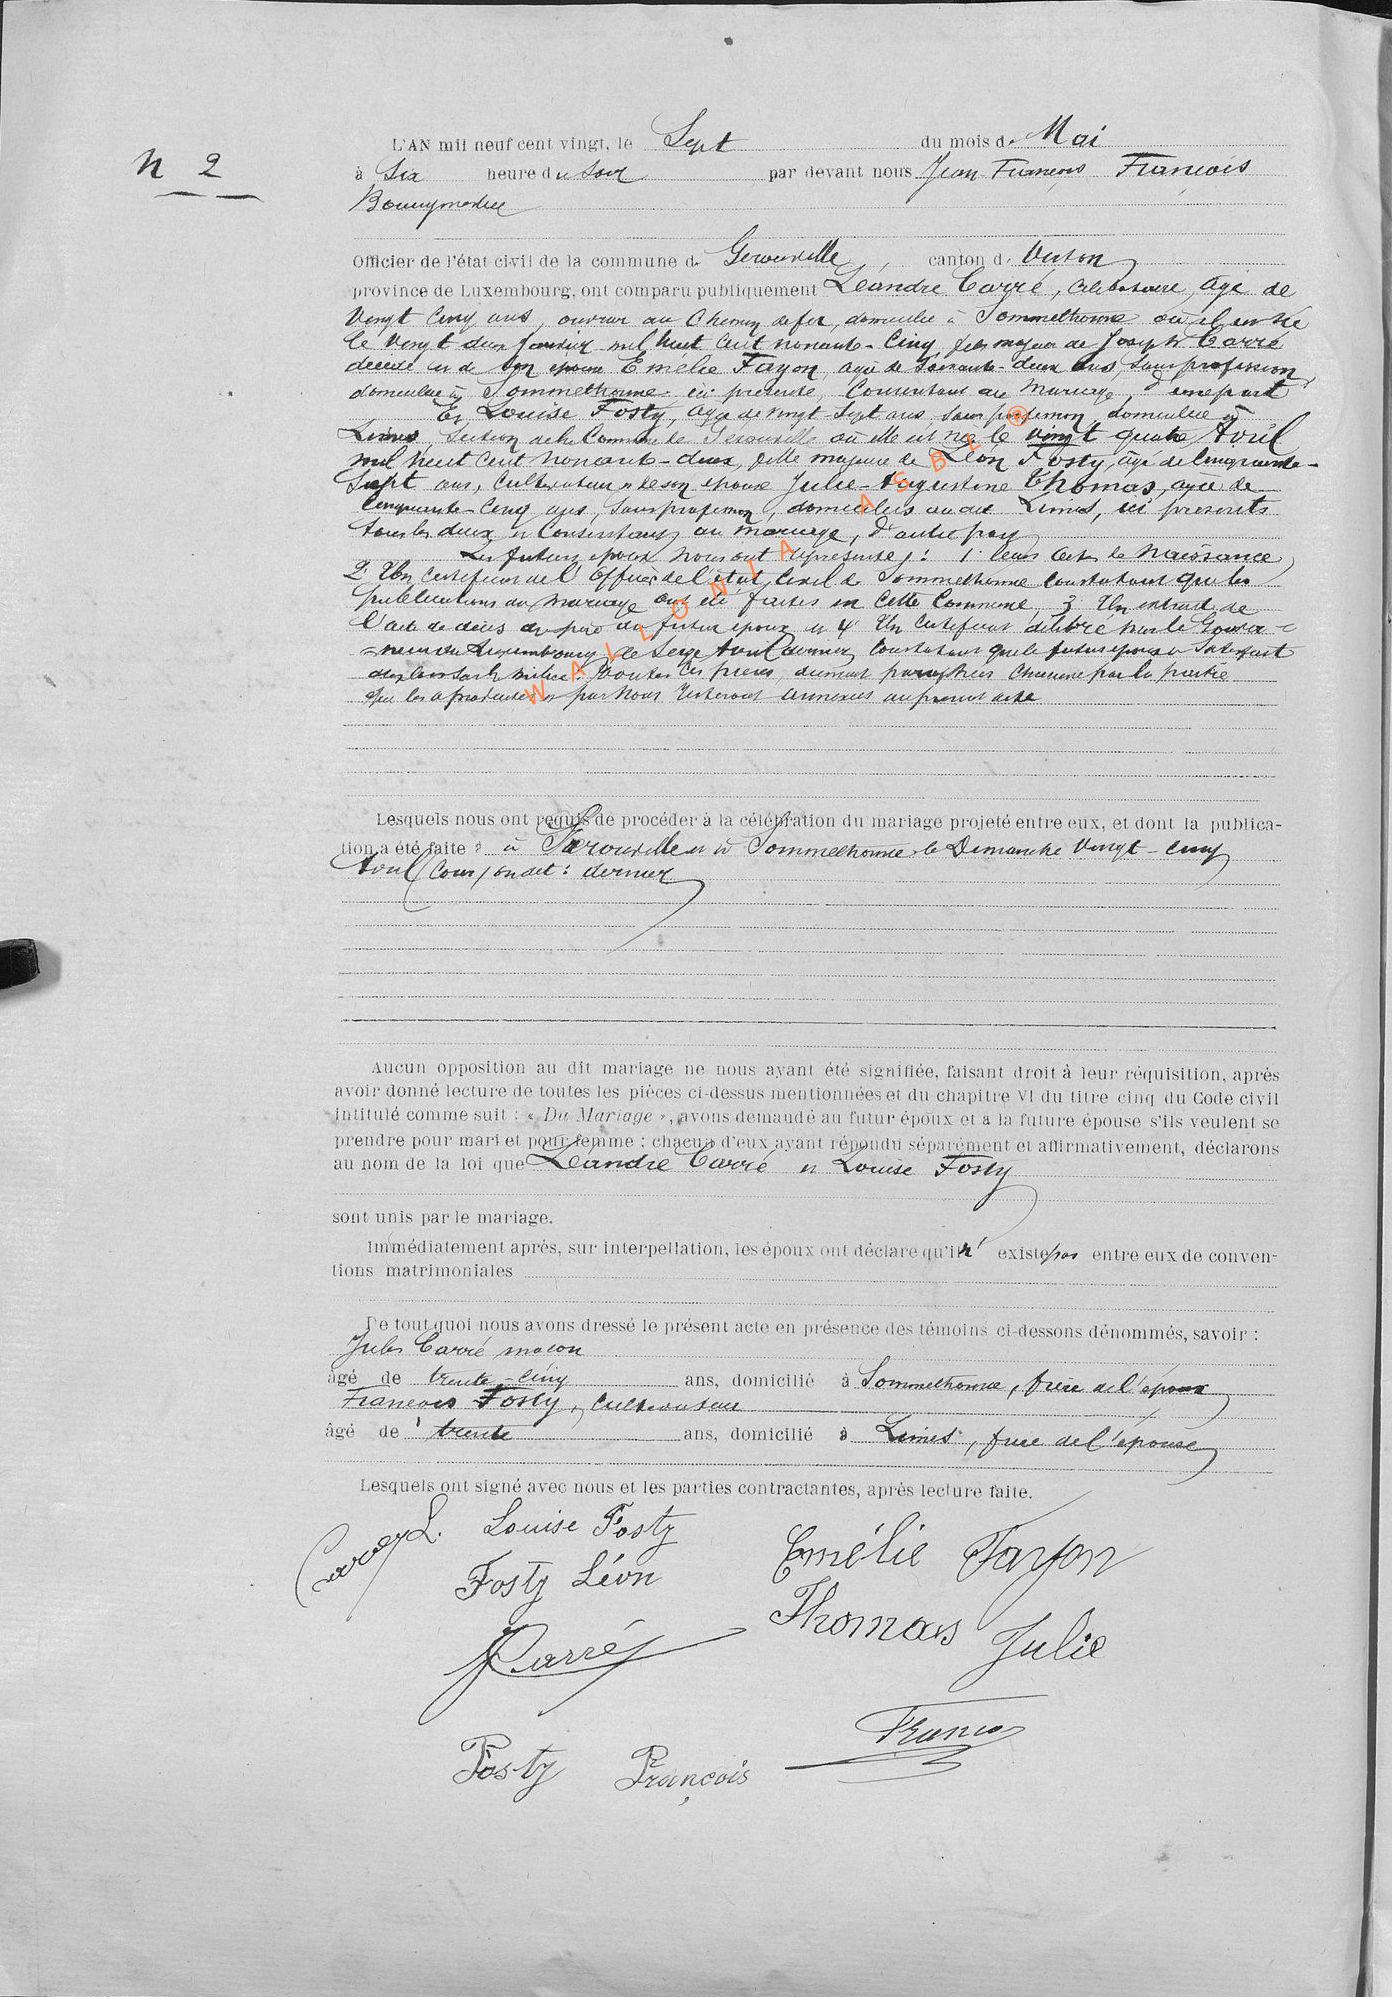 N 2
L'AN mil neuf cent vingt, le Sept du mois de Mai
à Six heure du soir par devant nous Jean François François
Bourgmestre
Officier de l'état civil de la commune de Gerouville, canton de Virton
province de Luxembourg, ont comparu publiquement Léandre Carré, célibataire, agé de
vingt cinq ans, ouvrier au chemin de fer, domicilié à Sommethonne où il est né
le vingt deux janvier mil huit cent nonante-cinq fils majeur de Joseph Carré
décédé et de son épouse Emélie Fayon, agée de soixante-deux ans, sans profession
domiciliée à Sommethonne ici présente, consentant au mariage, d'une part
Et Louise Fosty, agée de vingt sept ans, sans profession, domiciliée à
Limes, section de la commune de Gerouville où elle est née le vingt quatre Avril
mil huit cent nonante-deux, fille majeure de Léon Fosty, âgé de cinquante-
sept ans, cultivateur et de son épouse Julie-Augustine Thomas, agée de
cinquante-cinq ans, sans profession, domiciliés au dit Limes, ici présents
tous les deux et consentants au mariage, d'autre part
Les futurs époux nous ont représenté: 1° leurs actes de naissance
2° Un certificat de l'officier de l'état civil de Sommethonne constatant que les
publications du mariage ont été faites en cette commune, 3° Un extrait de
l'acte de décès du père du futur époux et 4° Un certificat délivré par le Gouver-
neur du Luxembourg, le seize Avril dernier constatant que le futur époux a satisfait
aux lois sur la milice. Toutes ces pièces, dûment paraphées chacune par la partie
qui les a produites et par nous resteront annexées au présent acte
WALLONIA ASBL ®
Lesquels nous ont requis de procéder à la célébration du mariage projeté entre eux, et dont la publica-
tion a été faite à Gerouville et à Sommethonne le Dimanche vingt-cinq
Avril (cour) on dit: dernier
Aucun opposition au dit mariage ne nous ayant été signifiée, faisant droit à leur réquisition, après
avoir donné lecture de toutes les pièces ci-dessus mentionnées et du chapitre VI du titre cinq du Code civil
intitulé comme suit : « Du Mariage », avons demandé au futur époux et a la future épouse s'ils veulent se
prendre pour mari et pour femme ; chacun d'eux ayant répondu séparément et affirmativement, déclarons
au nom de la loi que Léandre Carré et Louise Fosty
sont unis par le mariage.
Immédiatement après, sur interpellation, les époux ont déclaré qu'il n' existe pas entre eux de conven-
tions matrimoniales
De tout quoi nous avons dressé le présent acte en présence des témoins ci-dessons dénommés, savoir :
Jules Carré maçon
âgé de trente-cinq ans, domicilié à Sommethonne, frère de l'époux
François Fosty, cultivateur
âgé de trente ans, domicilié à Limes, frère de l'épouse
Lesquels ont signé avec nous et les parties contractantes, après lecture faite.
Carré L. Louise Fosty
Emélie Fayon
Fosty Léon
Thomas Julie
J Carré
François
Fosty François